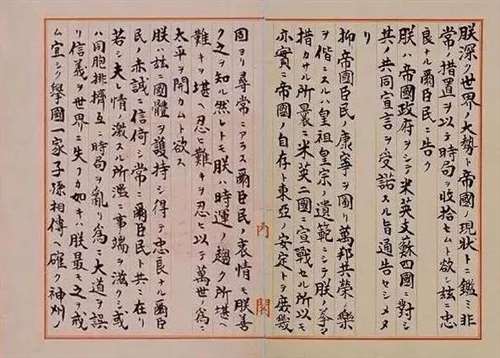 朕深ク世界ノ大勢ト帝國ノ現狀トニ鑑ミ非
常ノ措置ヲ以テ時局ヲ收拾セムト欲シ茲ニ忠
良ナル爾臣民ニ告ク
朕ハ帝國政府ヲシテ米英支蘇四國ニ對シ
其ノ共同宣言ヲ受諾スル旨通告セシメタ
リ
抑帝國臣民ノ康寧ヲ圖リ萬邦共榮ノ樂
ヲ偕ニスルハ皇祖皇宗ノ遺範ニシテ朕ノ拳々
措カサル所曩ニ米英二國ニ宣戰セル所以モ
亦實ニ帝國ノ自存ト東亞ノ安定トヲ庶幾
内閣
固ヨリ尋常ニアラス爾臣民ノ衷情モ朕善
ク之ヲ知ル然レトモ朕ハ時運ノ趨ク所堪ヘ
難キヲ堪ヘ忍ヒ難キヲ忍ヒ以テ萬世ノ爲ニ
太平ヲ開カムト欲ス
朕ハ茲ニ國體ヲ護持シ得テ忠良ナル爾臣
民ノ赤誠ニ信倚シ常ニ爾臣民ト共ニ在リ
若シ夫レ情ノ激スル所濫ニ事端ヲ滋クシ或
ハ同胞排擠互ニ時局ヲ亂リ爲ニ大道ヲ誤
リ信義ヲ世界ニ失フカ如キハ朕最モ之ヲ戒
ム宜シク擧國一家子孫相傳ヘ確ク神州ノ